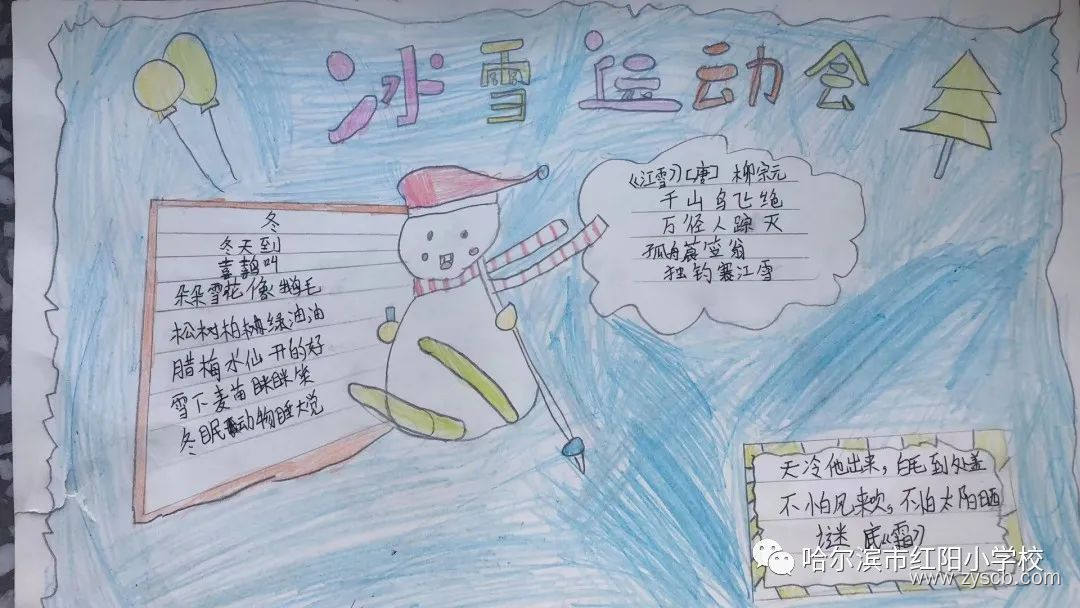 冰雪运动会
冬
冬天到
喜鹊叫
朵朵雪花像鹅毛
松树柏树绿油油
腊梅水仙开的好
雪下麦苗眯眯笑
冬眠动物睡大觉
《江雪》[唐] 柳宗元
千山鸟飞绝
万径人踪灭
孤舟蓑笠翁
独钓寒江雪
天冷他出来,白毛到处盖
不怕风来吹,不怕太阳晒
谜底《霜》
哈尔滨市红阳小学校
www.zyscb.com